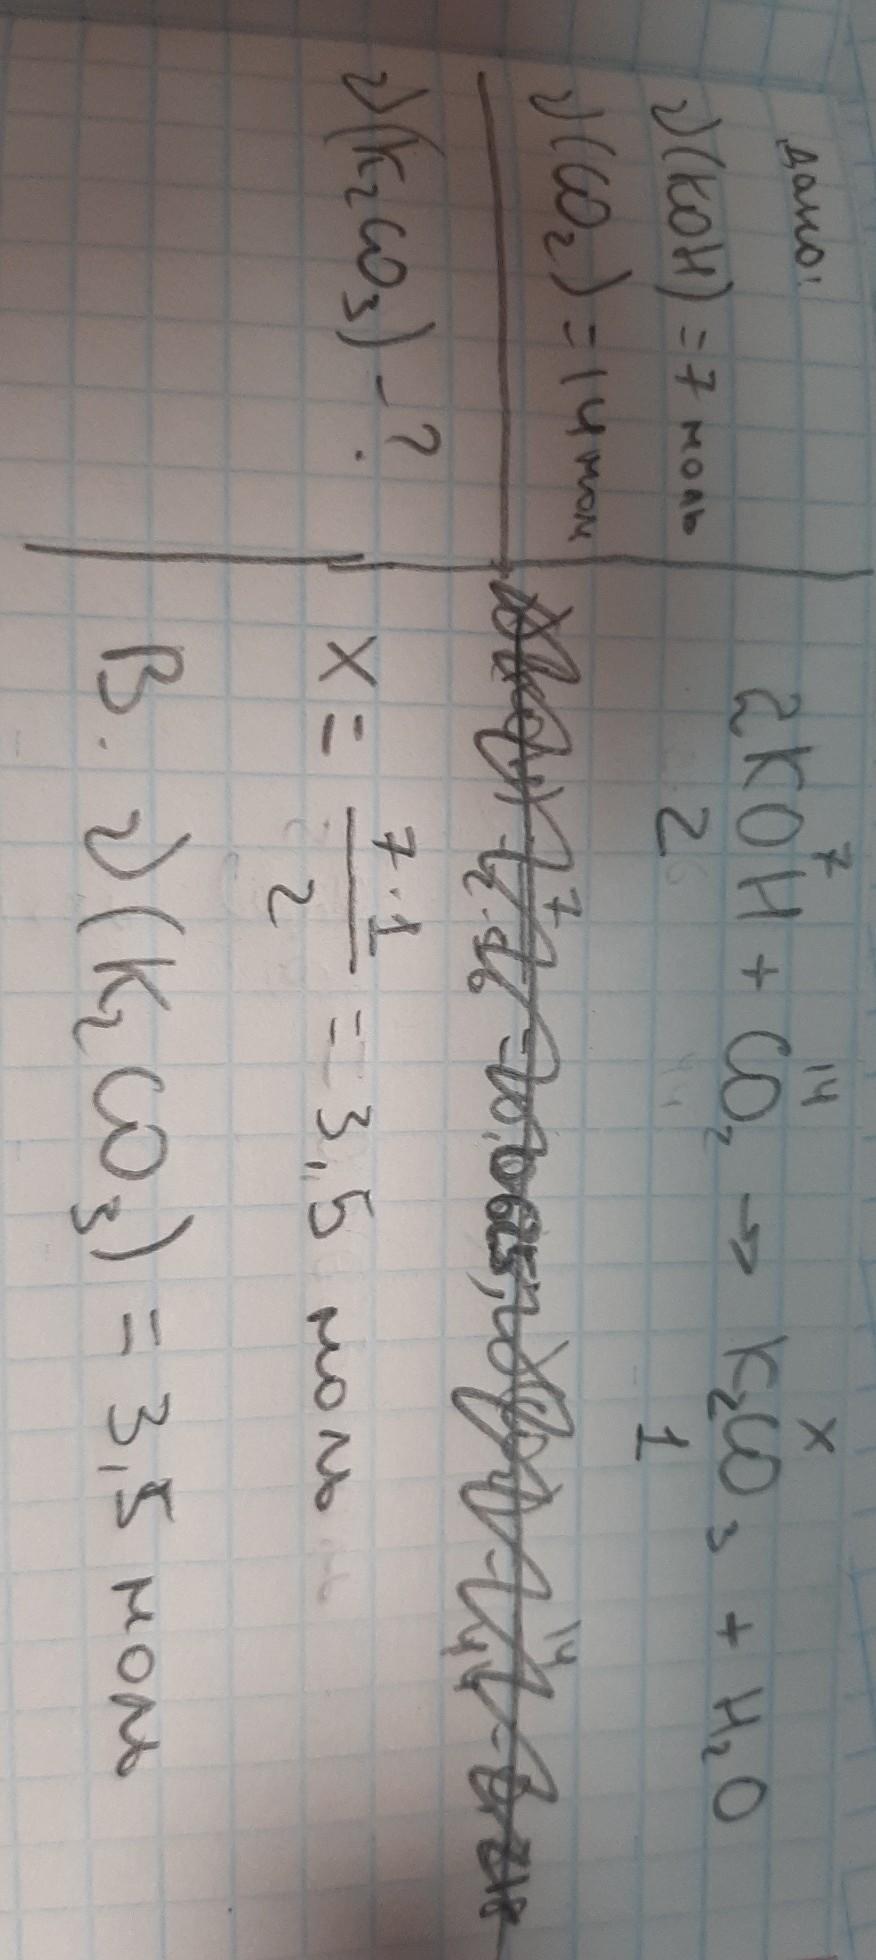 дано:
ν(KOH) = 7 моль
ν(CO₂) = 14 мол
ν(K₂CO₃) - ?
7 14 x
2KOH + CO₂ → K₂CO₃ + H₂O
2 1
x = 7·1/2 = 3,5 моль
В. ν(K₂CO₃) = 3,5 моль